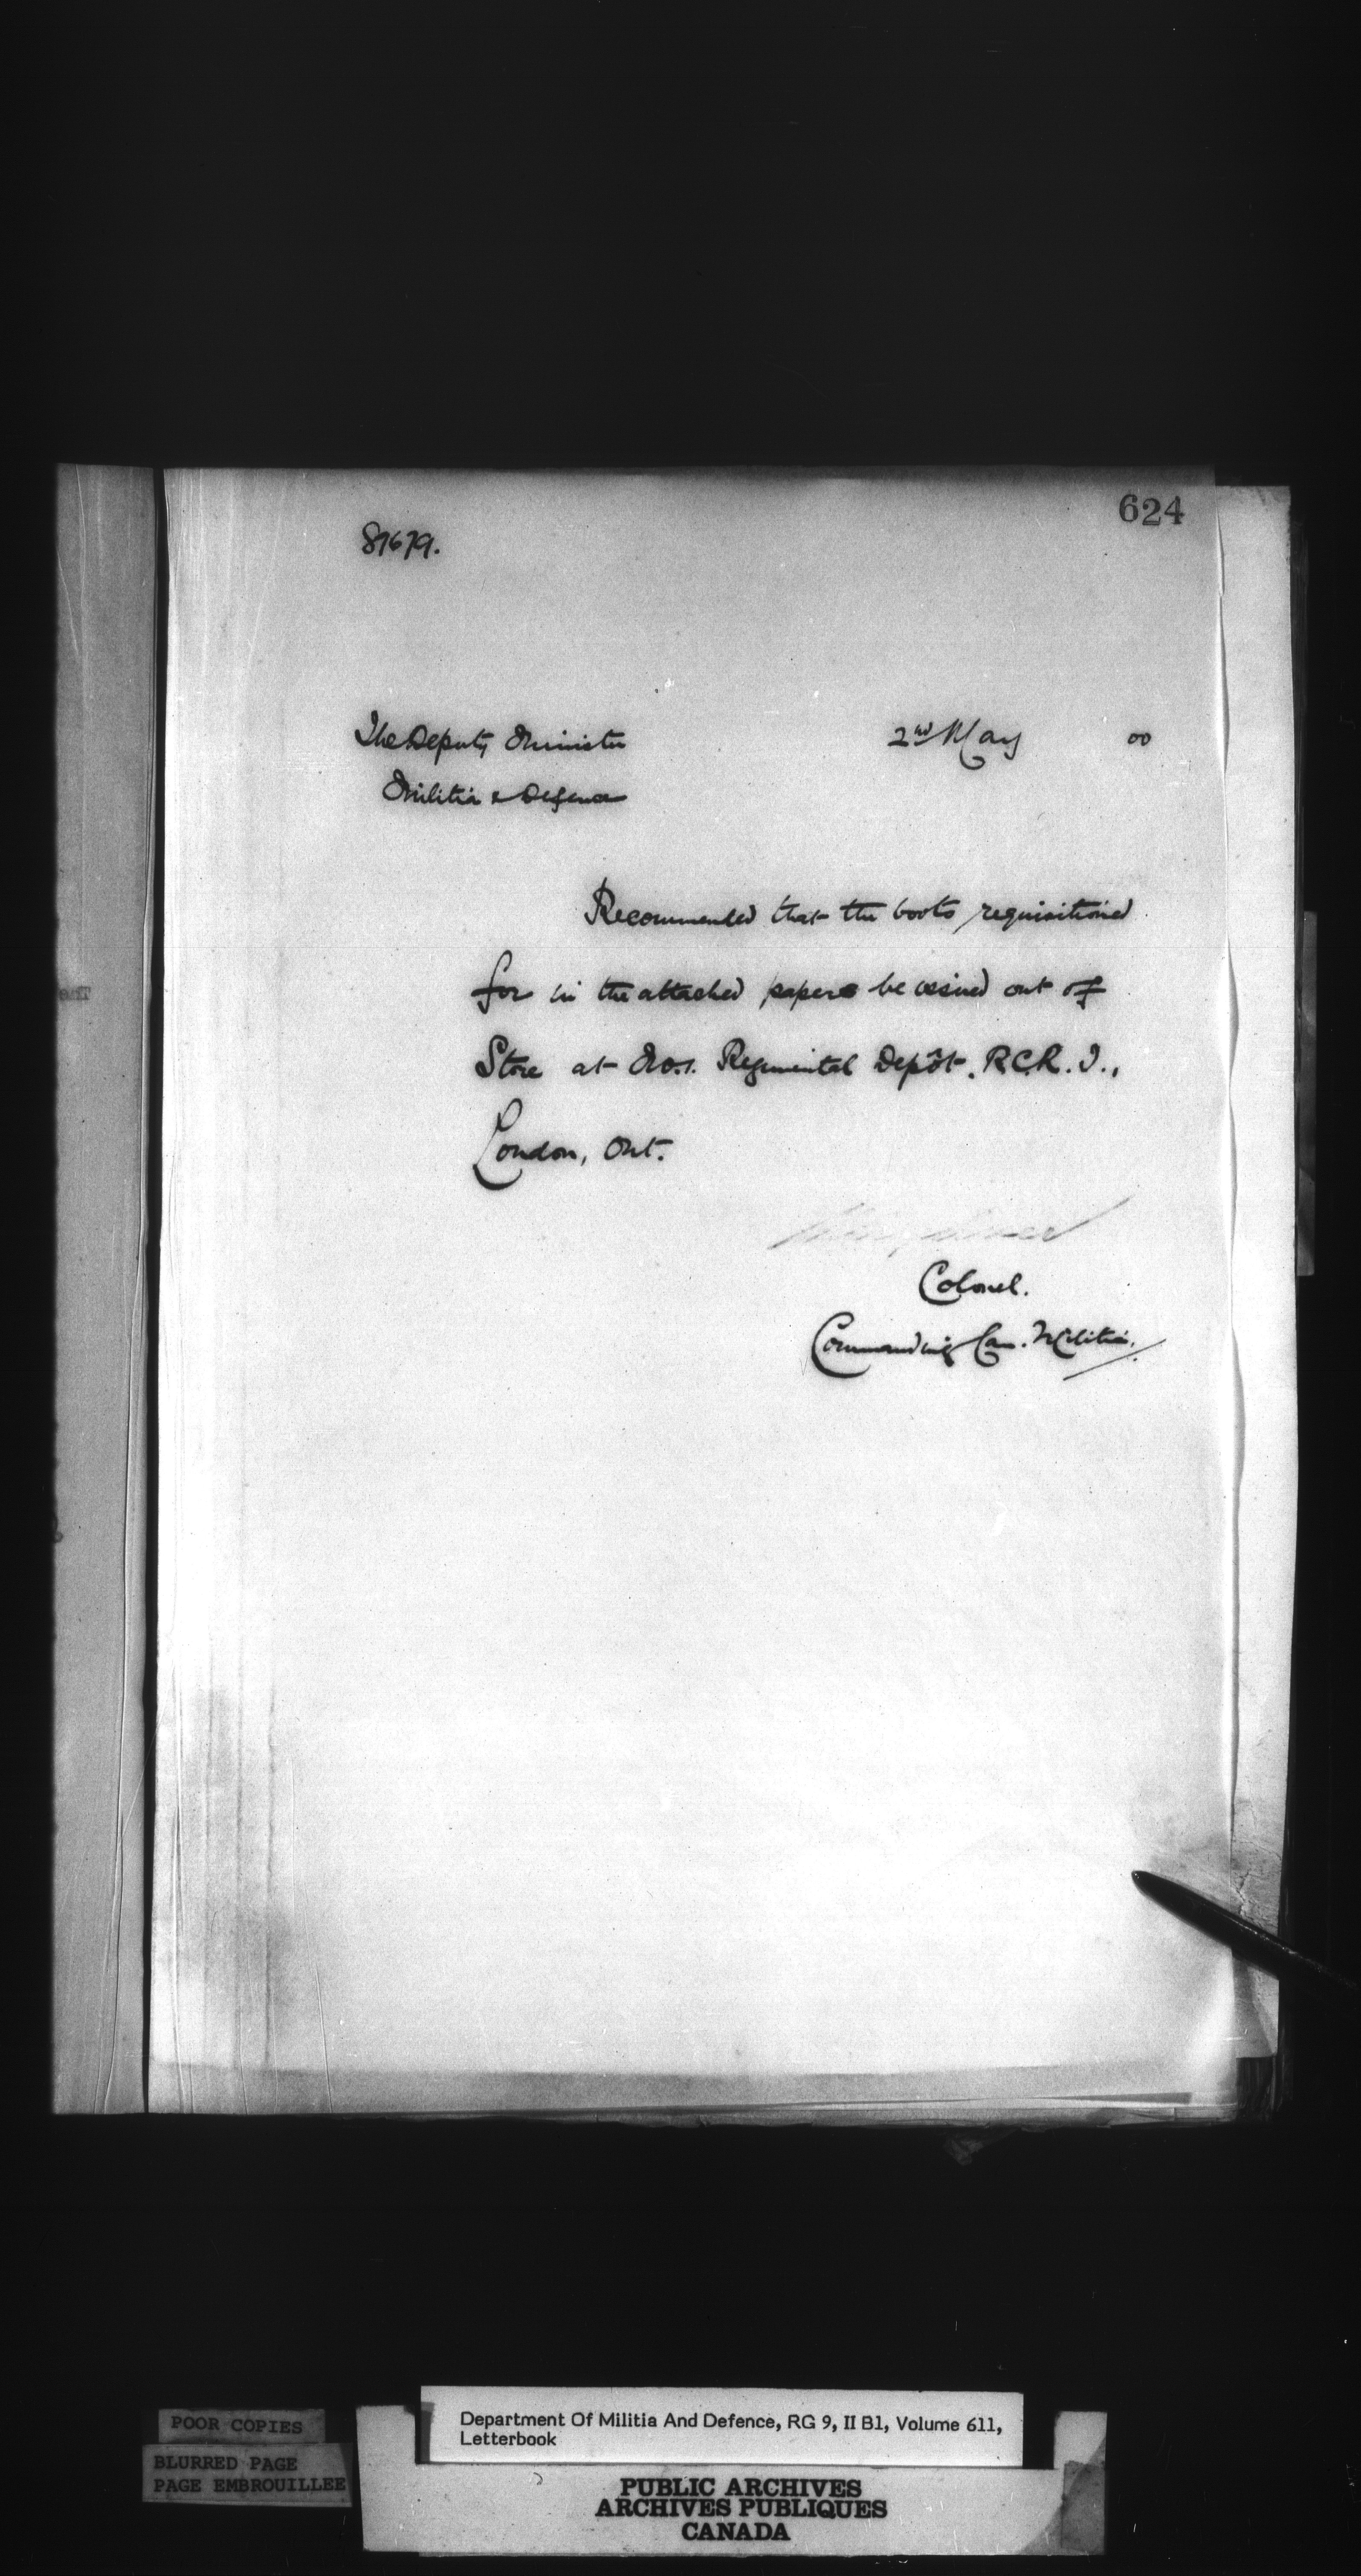 624
81679.
The Deputy Minister
2nd May 00
Militia & Defence
Recommended that the boots requisitioned
for in the attached papers be issued out of
Store at No. 1. Regimental Depôt. R.C.R.I.,
London, Ont.
Colonel.
Commanding Can. Militia.
POOR COPIES
BLURRED PAGE
PAGE EMBROUILLEE
Department Of Militia And Defence, RG 9, II B1, Volume 611,
Letterbook
PUBLIC ARCHIVES
ARCHIVES PUBLIQUES
CANADA